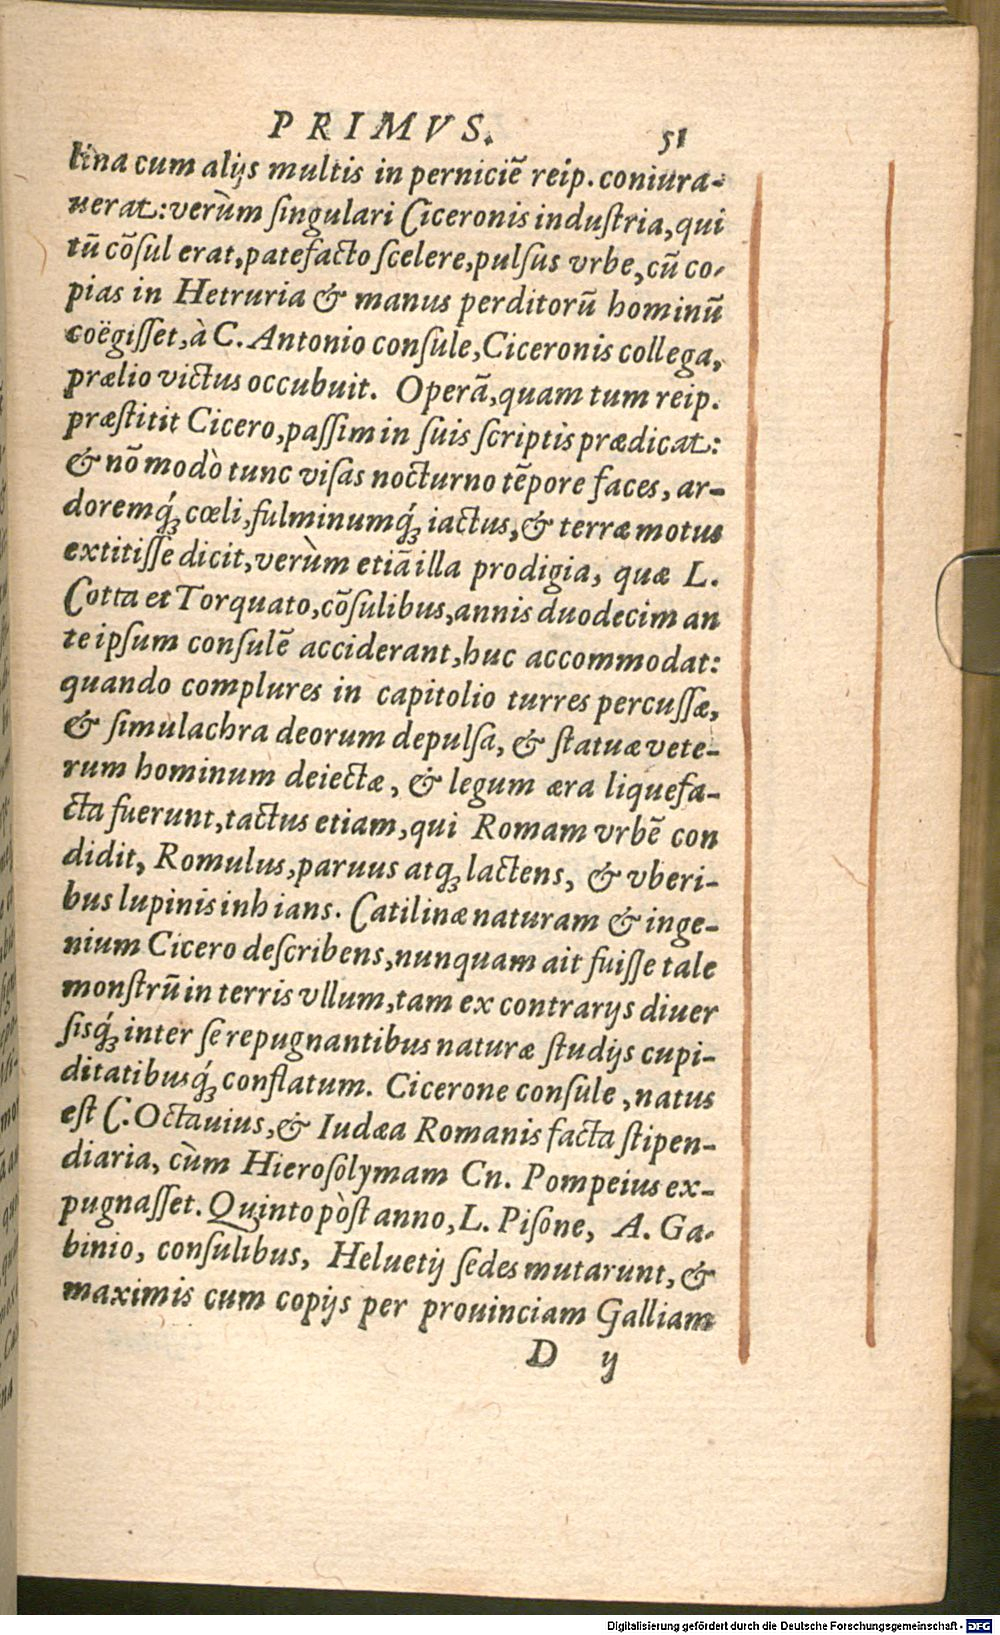 PRIMVS. 51
lina cum alijs multis in perniciē reip. coniura-
uerat: verùm ſingulari Ciceronis induſtria, qui
tū cōſul erat, patefacto ſcelere, pulſus vrbe, cū co-
pias in Hetruria & manus perditorū hominū
coëgiſſet, à C. Antonio conſule, Ciceronis collega,
prælio victus occubuit. Operā, quam tum reip.
præſtitit Cicero, paſſim in ſuis ſcriptis prædicat:
& nō modò tunc viſas nocturno tēpore faces, ar-
doremq́; cœli, fulminumq́; iactus, & terræ motus
extitiſſe dicit, verùm etiā illa prodigia, quæ L.
Cotta et Torquato, cōſulibus, annis duodecim an
te ipſum conſulē acciderant, huc accommodat:
quando complures in capitolio turres percuſſæ,
& ſimulachra deorum depulſa, & ſtatuæ vete-
rum hominum deiectæ, & legum æra liquefa-
cta fuerunt, tactus etiam, qui Romam vrbē con
didit, Romulus, paruus atq; lactens, & vberi-
bus lupinis inhians. Catilinæ naturam & inge-
nium Cicero deſcribens, nunquam ait fuiſſe tale
monſtrū in terris vllum, tam ex contrarijs diuer
ſisq́; inter ſe repugnantibus naturæ ſtudijs cupi-
ditatibusq́; conflatum. Cicerone conſule, natus
eſt C. Octauius, & Iudæa Romanis facta ſtipen-
diaria, cùm Hieroſolymam Cn. Pompeius ex-
pugnaſſet. Quinto pòſt anno, L. Piſone, A. Ga-
binio, conſulibus, Heluetij ſedes mutarunt, &
maximis cum copijs per prouinciam Galliam
D ij
Digitalisierung gefördert durch die Deutsche Forschungsgemeinschaft - DFG